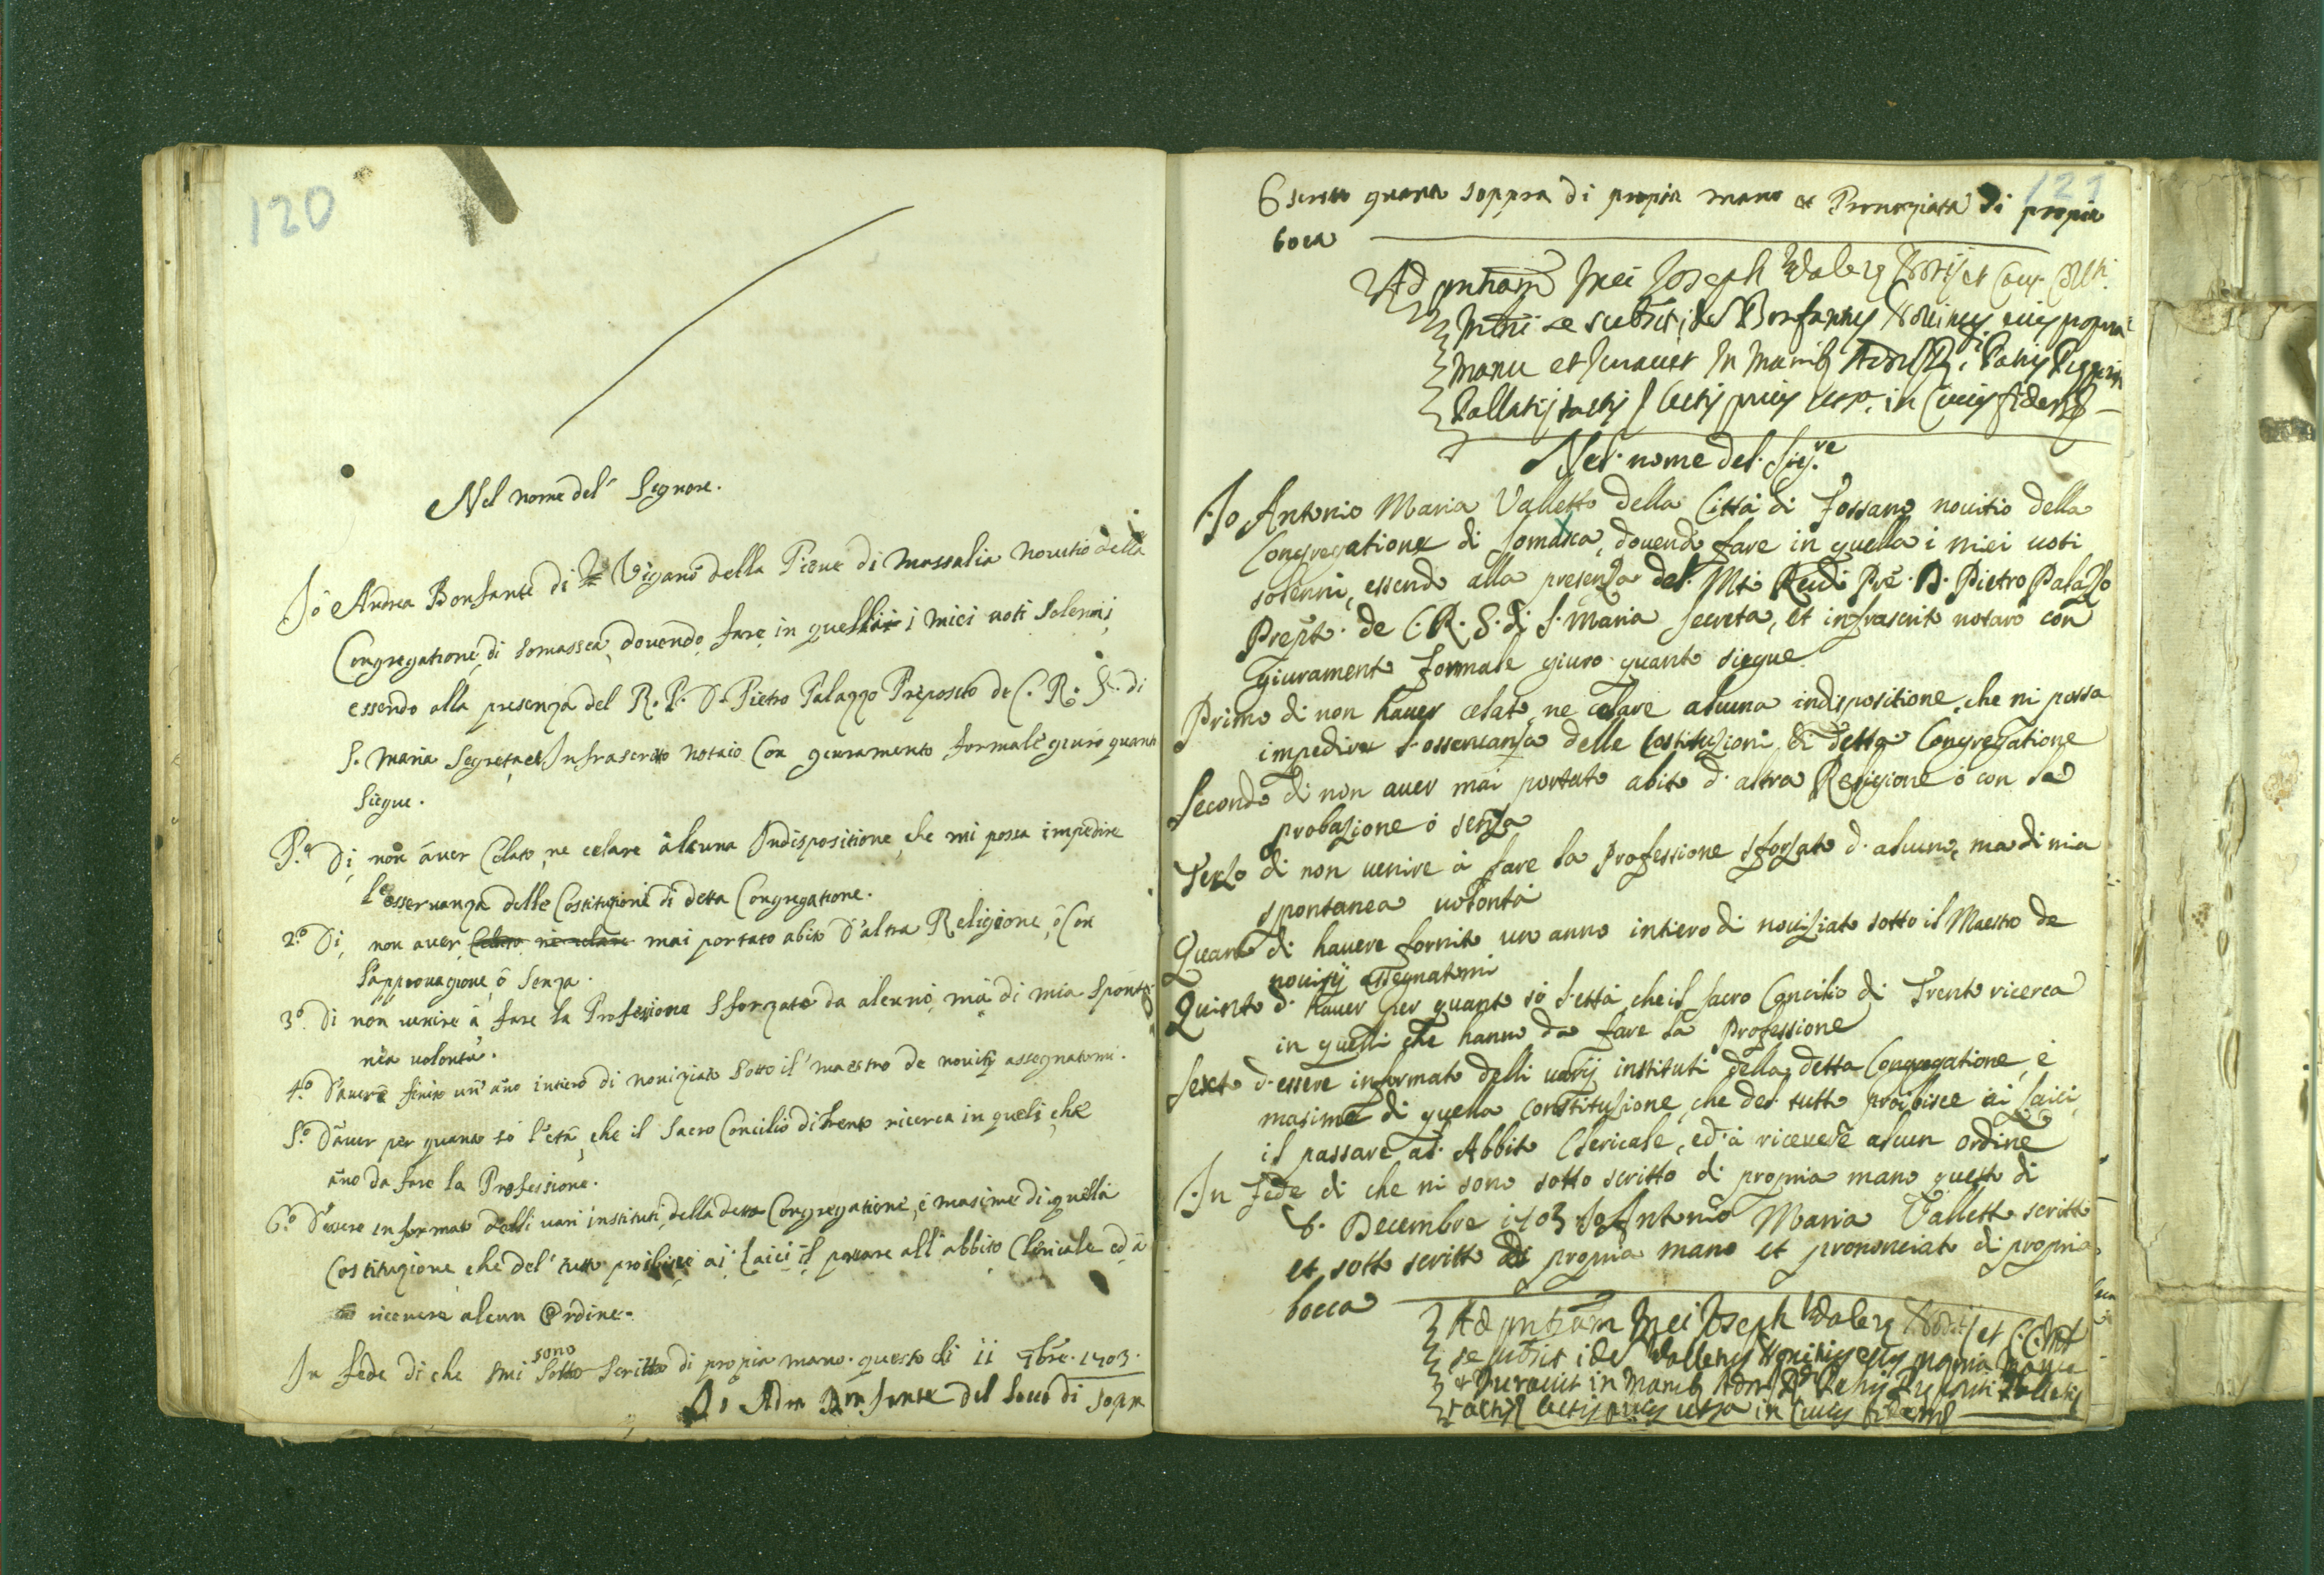 120
Nel nome del' Signore.
Io Andrea Bonfante di Viganò della Pieve di Massalia Novitio della
Congregatione di Somassca, dovendo fare in quella i miei voti Solenni,
essendo alla presenza del R. P. D. Pietro Palazzo Preposito de C. R. S. di
S. Maria Segreta et Infrascritto notaio Con giuramento formale giuro quanto
Siegue.
P.º Di, non aver Celato, ne celare alcuna Indispositione, che mi possa impedire
l'osservanza delle Costituzioni di detta Congregatione.
2.º Di, non aver Celato ne celare mai portato abito d'altra Religione, ò Con
l'approvazione, ò Senza.
3.º Di non venire à fare la Professione Sforzato da alcuno, mà di mia Sponta
nea volontà.
4.º D'avere finito un' año intiero di noviziato Sotto il' maestro de novitij assegnatomi.
5.º D'aver per quanto sò l'età, che il Sacro Concilio di Trento ricerca in queli, che
año da fare la Professione.
6.º D'essere informato delli vari instituti, della detta Congregatione, é masime di quella
Costituzione, che del' tutto proibisce ai Laici il passare all'abbito Clericale ed à
ricevere alcun Ordine.
In fede di che mi sono Sotto Scritto di propia mano questo di 11 9bre. 1703.
Io Bonfante del Loco di Sopra
121
scritto quanto soppra di propia mano et Prononziata di propia
boca
Ad pntiam mei Joseph
manu et Juravit in manib
tactis in quoru fidem
Nel nome del Sig.re
Io Antonio Maria Valletto della Città di Fossano novitio della
Congregatione di Somasca, dovendo fare in quella i miei voti
solenni, essendo alla presenza del Pre. D. Pietro Palazzo
Prep.to de C. R. S. di S. Maria secreta, et infrascrit notaro con
giuramento formale giuro quanto siegue
Primo di non haver celato, ne celare alcuna indispositione, che mi possa
impedire l'osservanza delle Costituzioni di detta Congregatione
Secondo di non aver mai portato abito d'altra Religione ò con la
probazione ò senza
Terzo di non venire à fare la Professione sforzato d'alcuno, ma di mia
spontanea volontà
Quarto di havere fornito un anno intiero di noviziato sotto il Maestro de
novizij assegnatomi
Quinto d'haver per quanto sò l'età, che il sacro Concilio di Trento ricerca
in quelli che hanno da fare la Professione
Sexto d'essere informato delli varij instituti della detta Congregatione, é
masime di quella constituzione, che del tutto proibisce ai Laici
il passare al Abbito Clericale, ed à ricevere alcun ordine
In fede di che mi sono sotto scritto di propria mano questo di
Decembre 1703 Io Antonio Maria Valletto scritto
et sotto scritto di propria mano et prononciato di propria
bocca
Ad pntiam mei Joseph
Juravit in manib
in quoru fidem